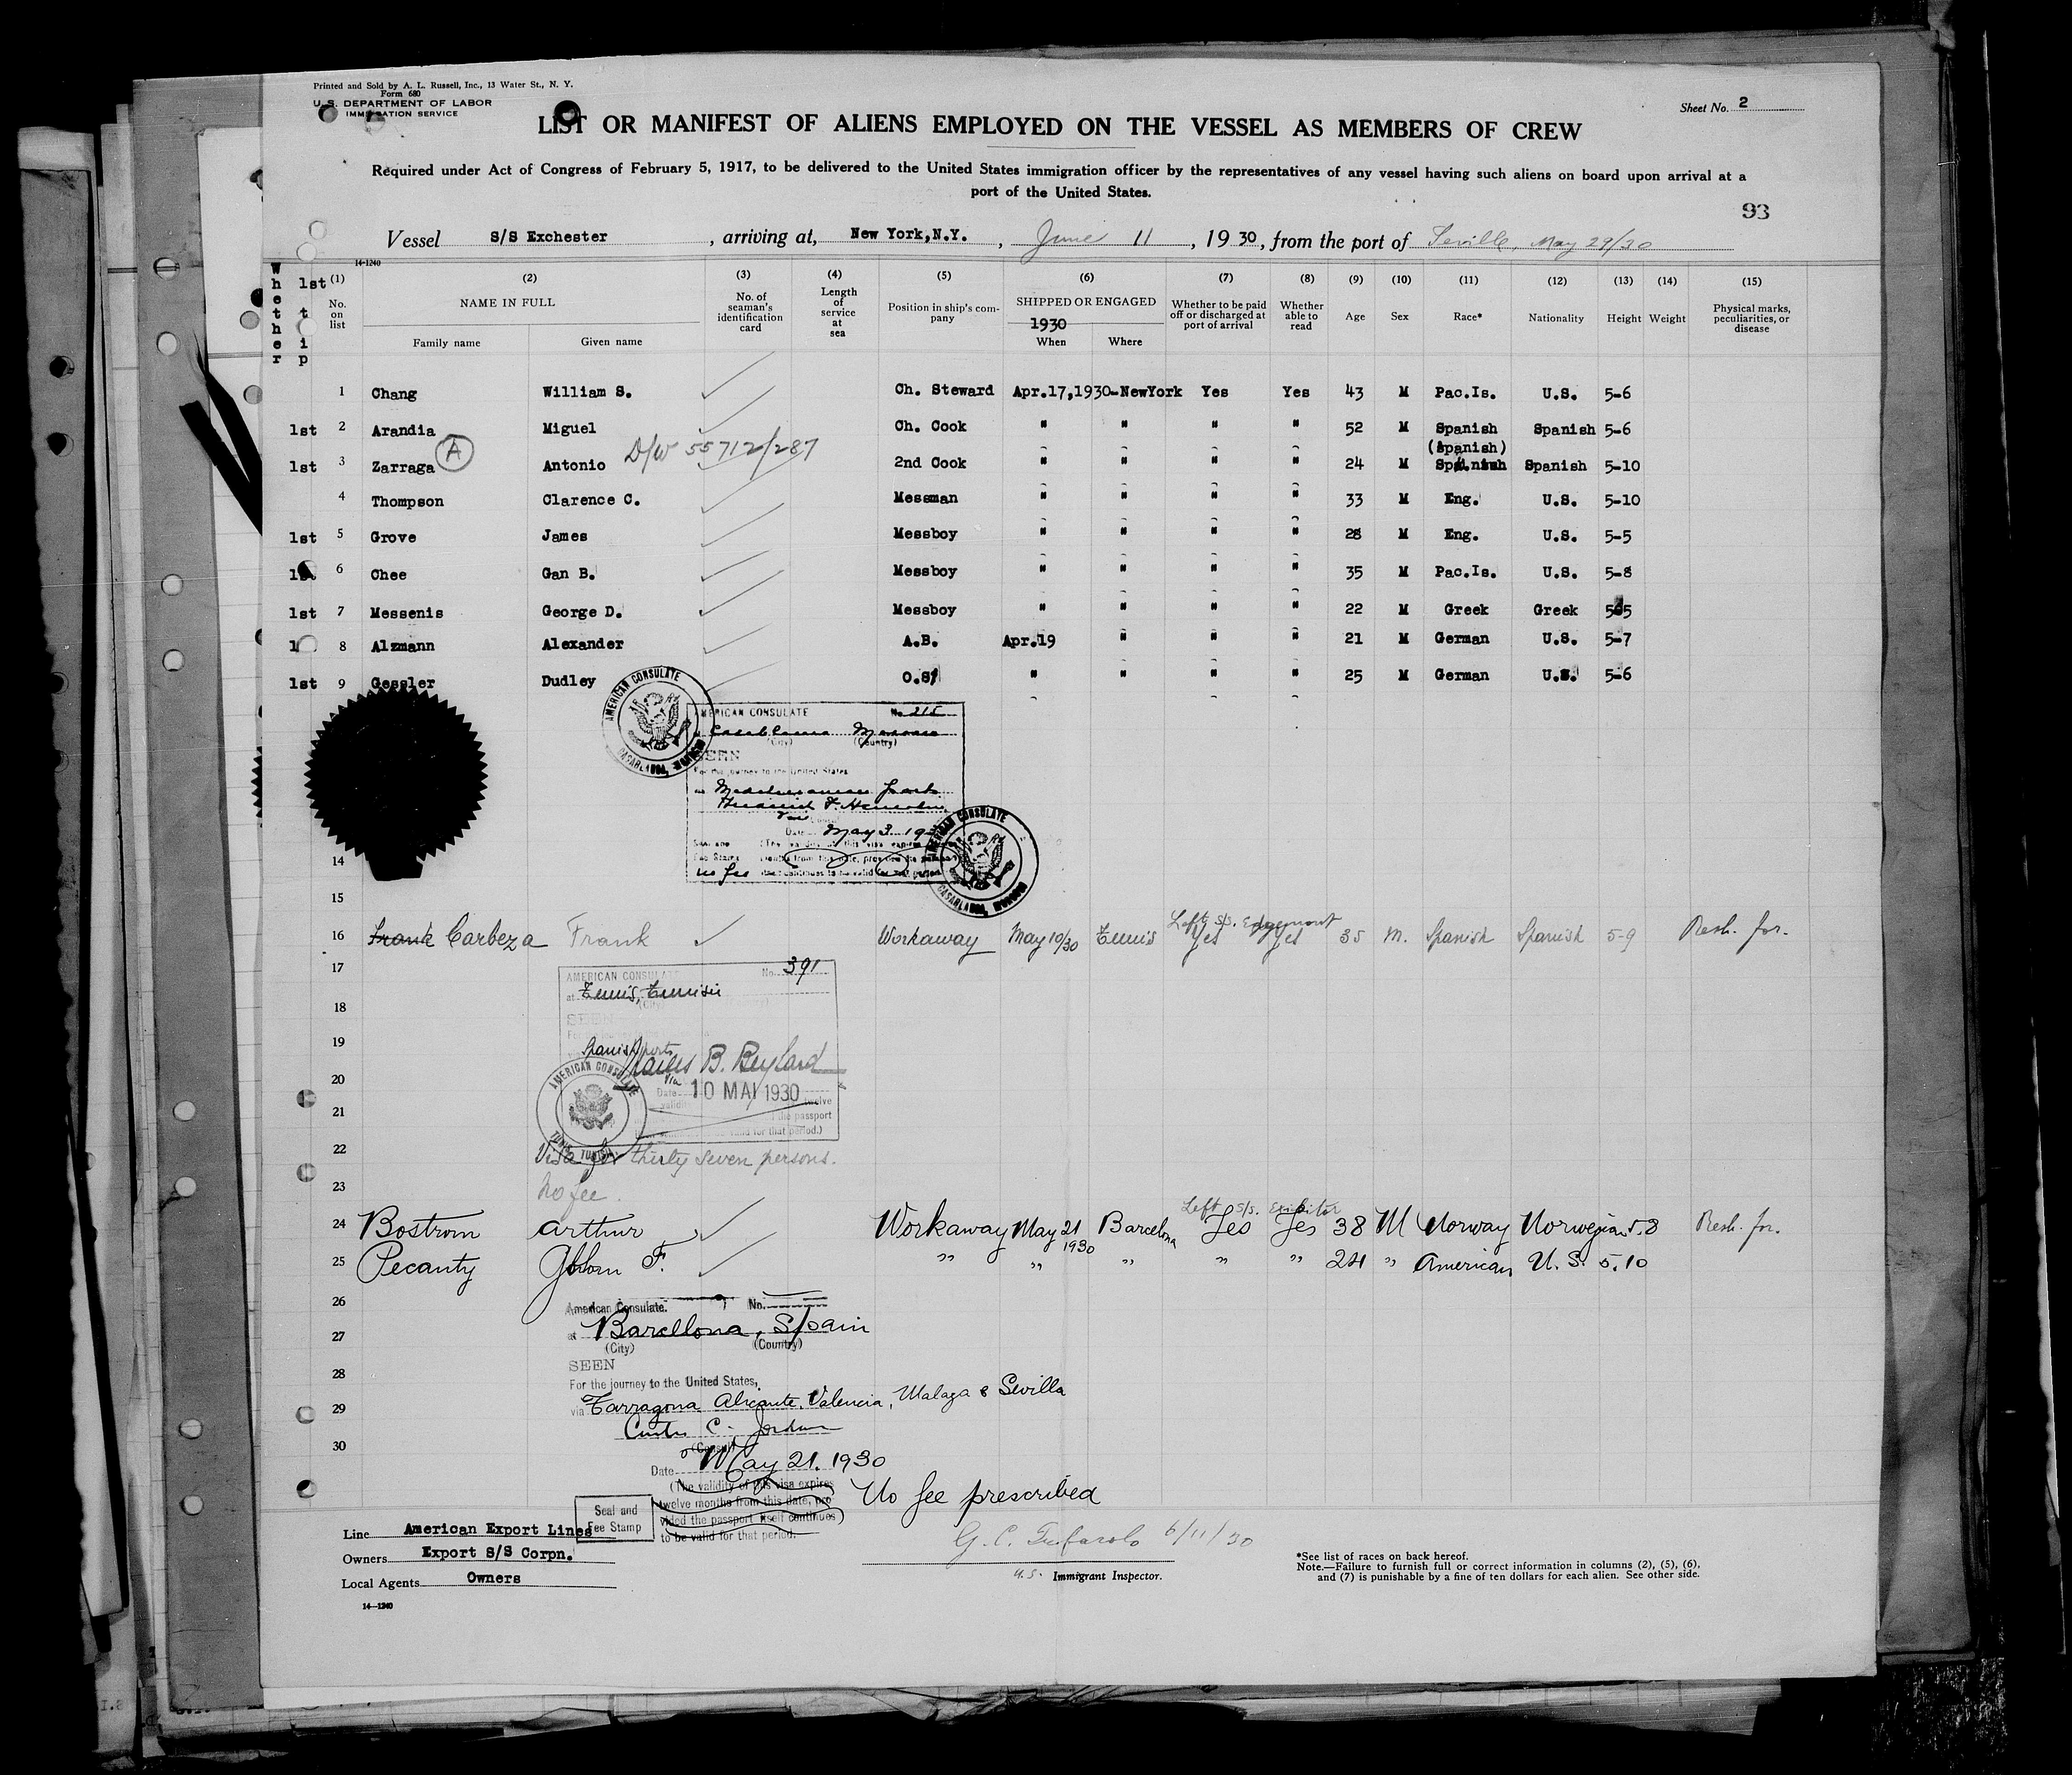 Printed and Sold by A. L. Russell, Inc., 13 Water St., N. Y.
Form 680
U.S. DEPARTMENT OF LABOR
IMMIGRATION SERVICE
Sheet No. 2
LIST OR MANIFEST OF ALIENS EMPLOYED ON THE VESSEL AS MEMBERS OF CREW
Required under Act of Congress of February 5, 1917, to be delivered to the United States immigration officer by the representatives of any vessel having such aliens on board upon arrival at a
port of the United States.
93
Vessel S/S Exchester, arriving at, New York,N.Y., June 11, 1930, from the port of Seville, May 29/30
14-1240
Whether 1st trip
(1) (2) (3) (4) (5) (6) (7) (8) (9) (10) (11) (12) (13) (14) (15)
No. on list NAME IN FULL No. of seaman's identification card Length of service at sea Position in ship's company SHIPPED OR ENGAGED 1930 Whether to be paid off or discharged at port of arrival Whether able to read Age Sex Race* Nationality Height Weight Physical marks, peculiarities, or disease
Family name Given name When Where
1 Chang William S. Ch. Steward Apr.17,1930-NewYork Yes Yes 43 M Pac.Is. U.S. 5-6
1st 2 Arandia Miguel Ch. Cook " " " " 52 M Spanish Spanish 5-6
A D/W 55712/287 (Spanish)
1st 3 Zarraga Antonio 2nd Cook " " " " 24 M Spanish Spanish 5-10
4 Thompson Clarence C. Messman " " " " 33 M Eng. U.S. 5-10
1st 5 Grove James Messboy " " " " 28 M Eng. U.S. 5-5
1st 6 Chee Gan B. Messboy " " " " 35 M Pac.Is. U.S. 5-8
1st 7 Messenis George D. Messboy " " " " 22 M Greek Greek 5-5
1 8 Alzmann Alexander A.B. Apr.19 " " " 21 M German U.S. 5-7
1st 9 Gessler Dudley O.S. " " " " 25 M German U.S. 5-6
AMERICAN CONSULATE
CASABLANCA, MOROCCO
AMERICAN CONSULATE No. 215
Casablanca Morocco
(City) (Country)
SEEN
For the journey to the United States
Mediterranean ports
Date May 3 19
no fee
AMERICAN CONSULATE
CASABLANCA, MOROCCO
14
15
Left S/S. Edgemont
16 Frank Carbeza Frank Workaway May 10/30 Tunis Yes Yes 35 M. Spanish Spanish 5-9 Resh. for.
17
AMERICAN CONSULATE No. 391
at Tunis, Tunisie
(City)
18
SEEN
19
Spanish ports
Charles B. Beylard
20
AMERICAN CONSULATE
TUNIS, TUNISIA
Date 10 MAI 1930
21
validity twelve
the passport
for that period.)
22
Visa for thirty seven persons.
23
No fee.
Left S/S. Exibitor
24 Bostrom Arthur Workaway May 21 1930 Barcelona Yes Yes 38 M Norway Norwegian 5.8 Resh. for.
25 Pecanty F. " " " " " 24 " American U.S. 5.10
26
American Consulate. No.
27
at Barcelona, Spain
(City) (Country)
SEEN
28
For the journey to the United States,
29
via Tarragona, Alicante, Valencia, Malaga & Sevilla
Curtis C. Jordan
30
(Consul)
Date May 21. 1930
(The validity of this visa expires
twelve months from this date, pro
vided the passport itself continues)
to be valid for that period.
No fee prescribed
Seal and
Fee Stamp
Line American Export Lines
Owners Export S/S Corpn.
Local Agents Owners
14-1240
6/11/30
U.S. Immigrant Inspector.
*See list of races on back hereof.
Note.—Failure to furnish full or correct information in columns (2), (5), (6),
and (7) is punishable by a fine of ten dollars for each alien. See other side.